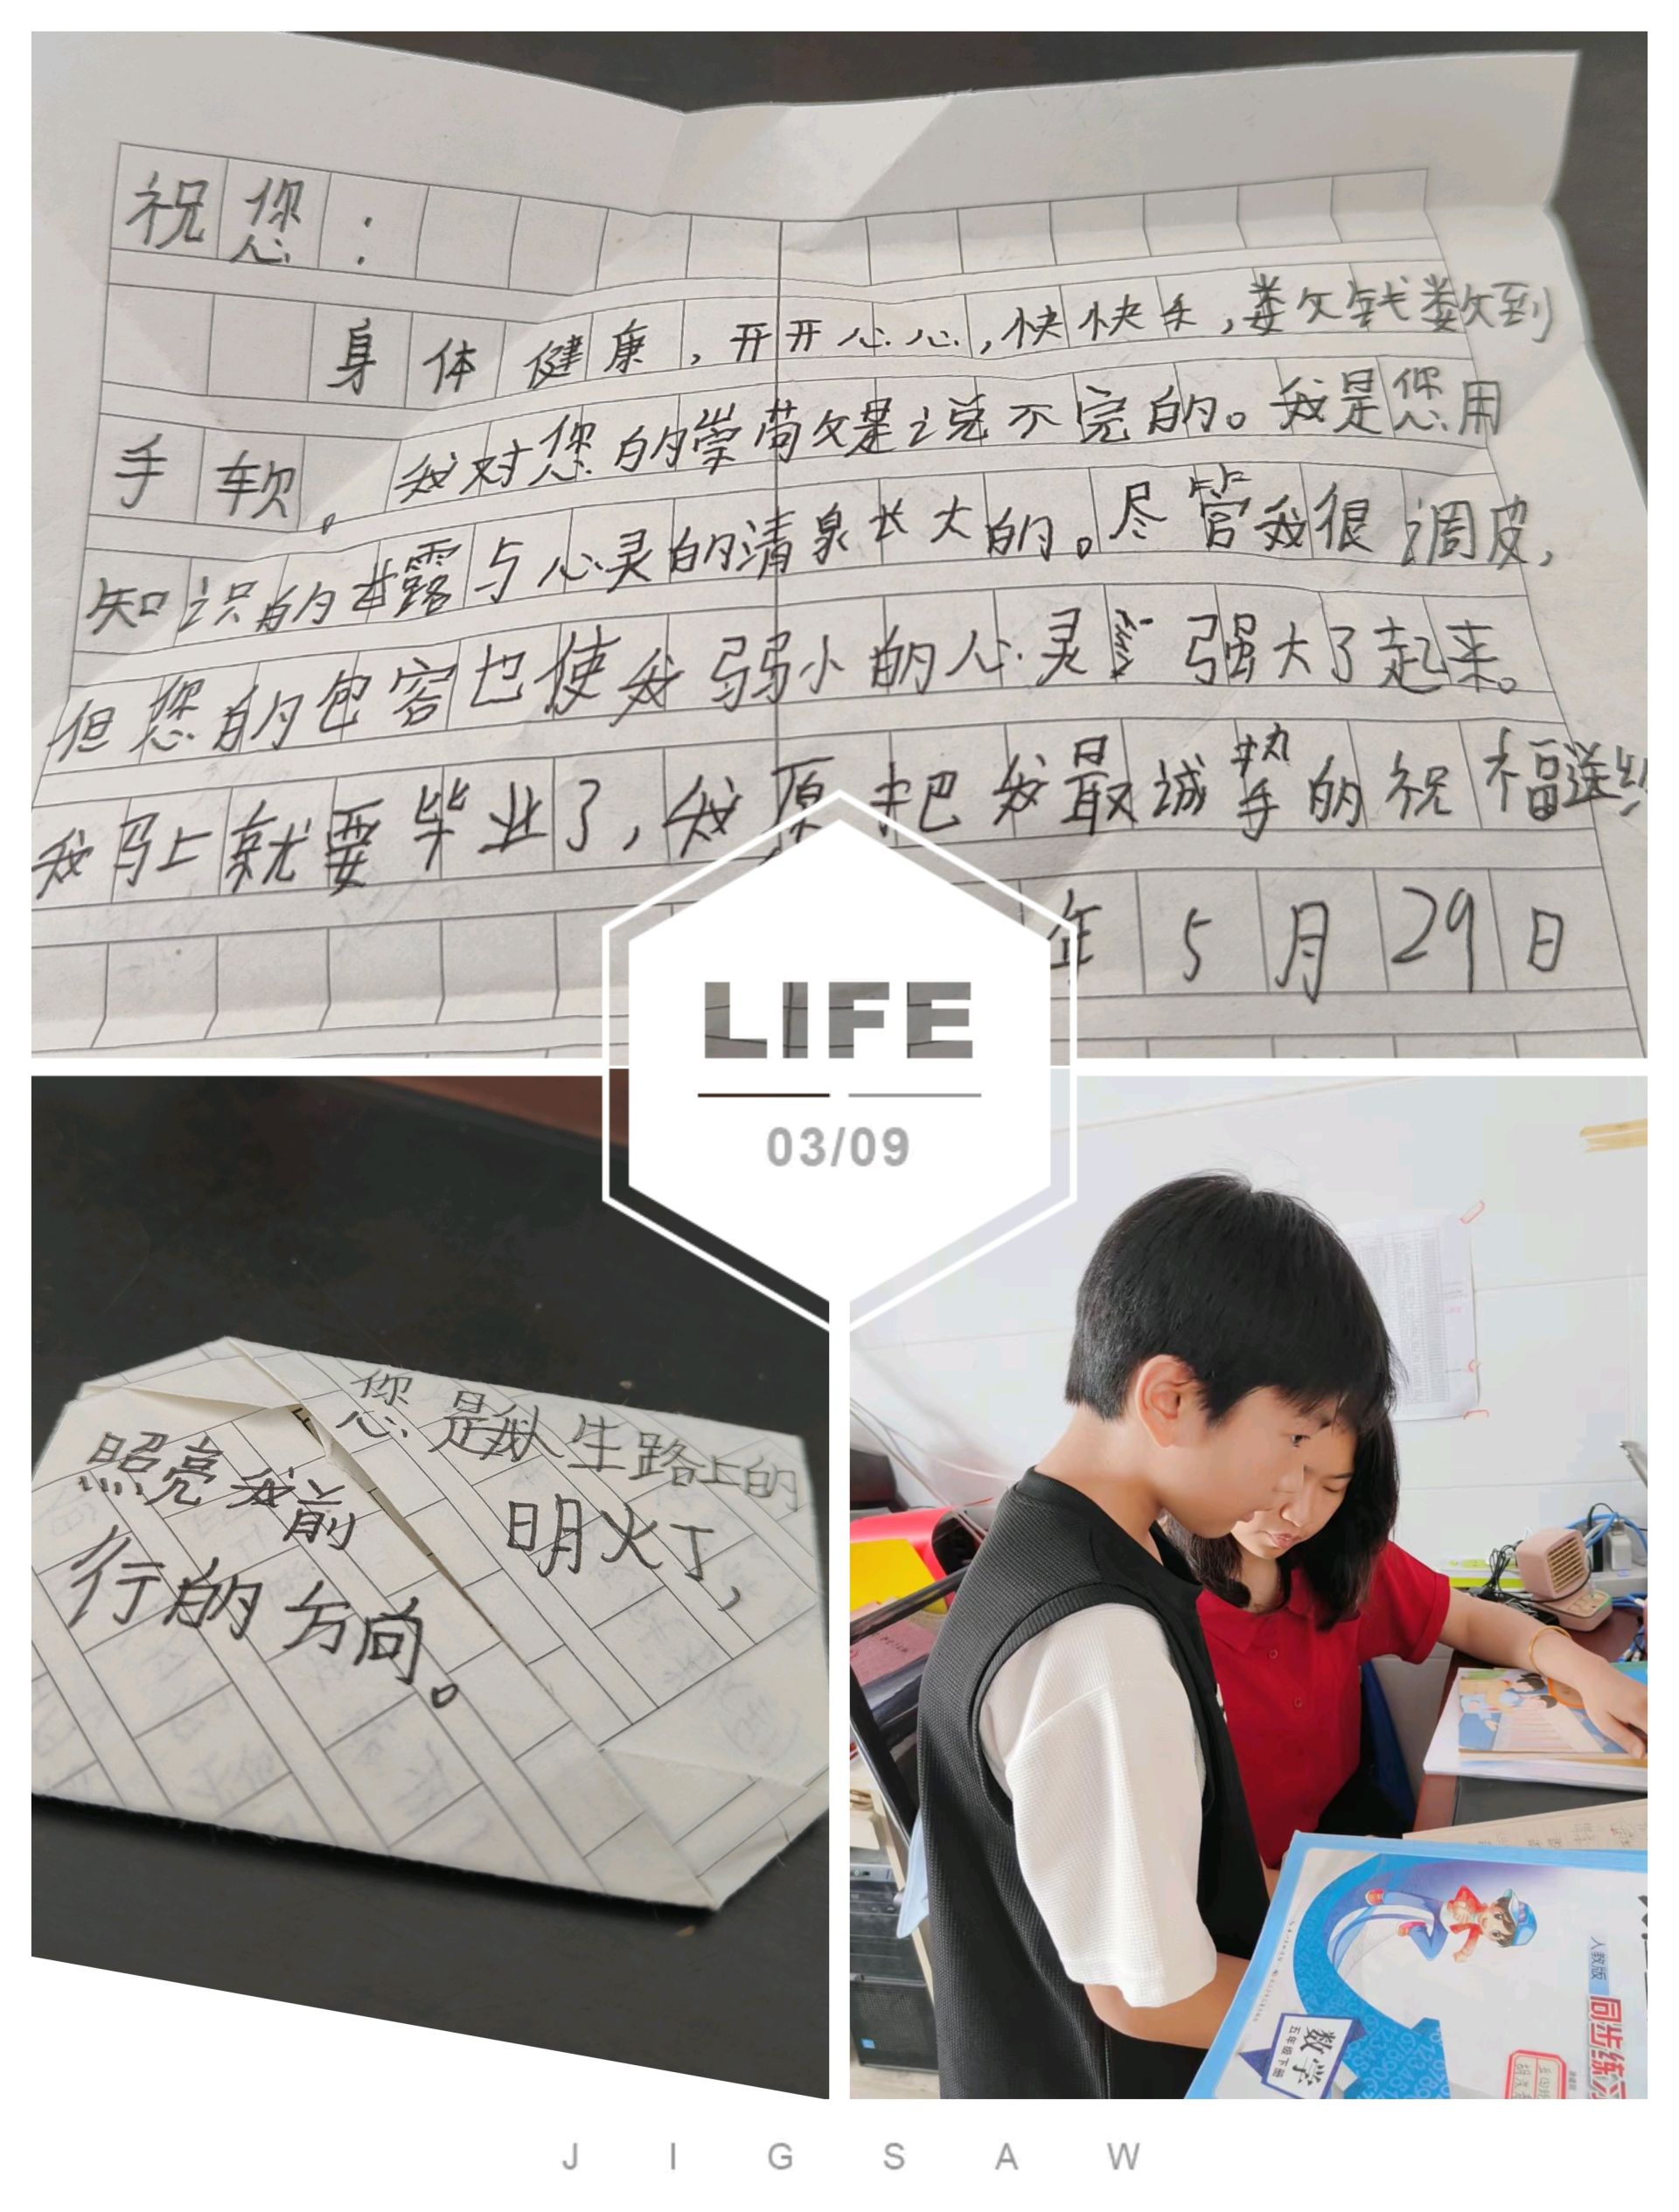 祝您：
身体健康，开开心心，快快乐，数钱数到
手软。我对您的崇高敬是说不完的。我是您用
知识的甘露与心灵的清泉长大的。尽管我很调皮，
但您的包容也使我弱小的心灵强大了起来。
我马上就要毕业了，我原把我最诚挚的祝福送给
年5月29日
LIFE
03/09
您是我人生路上的
明灯，
照亮我前
行的方向。
人教版
同步练习
数学
五年级下册
JIGSAW